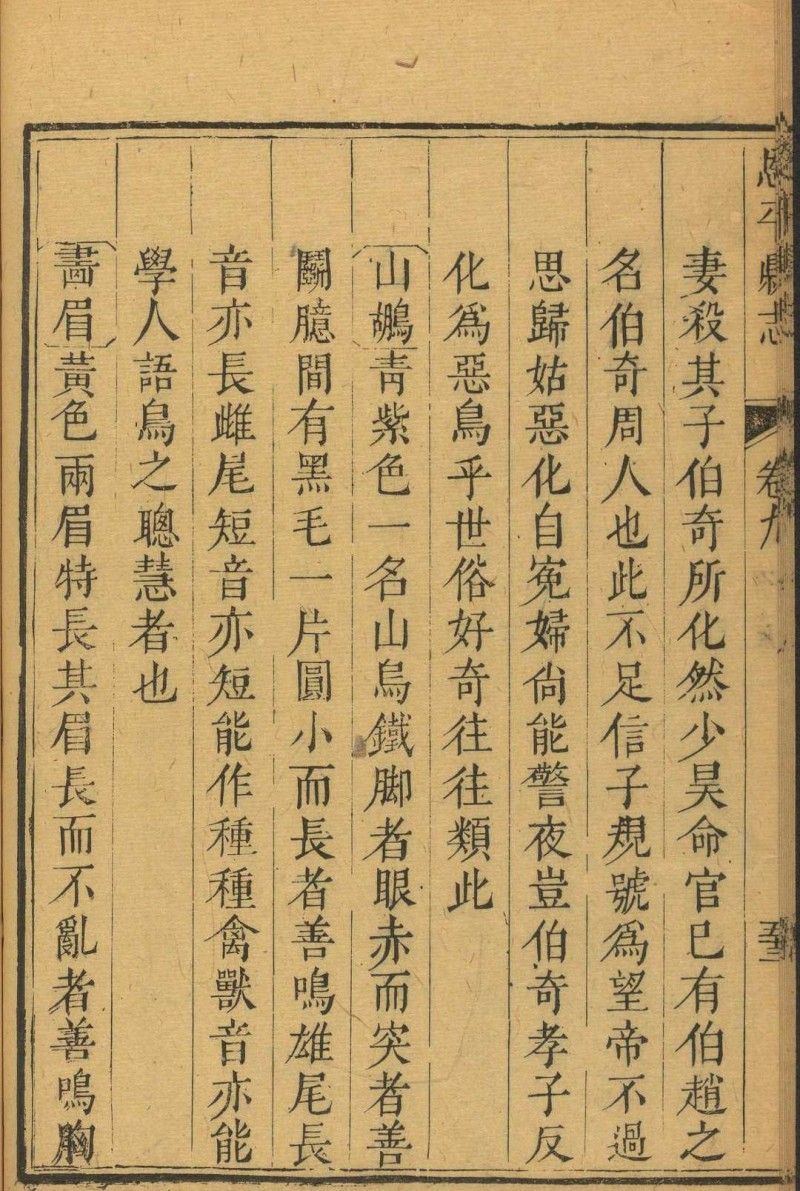 恩平縣志
卷九
妻殺其子伯奇所化然少昊命官巳有伯趙之
名伯奇周人也此不足信子規號爲望帝不過
思歸姑惡化自寃婦尙能警夜豈伯奇孝子反
化爲惡鳥乎世俗好奇往往類此
山鷓靑紫色一名山烏鐵脚者眼赤而突者善
鬭臆間有黑毛一片圓小而長者善鳴雄尾長
音亦長雌尾短音亦短能作種種禽獸音亦能
學人語鳥之聰慧者也
畵眉黃色兩眉特長其眉長而不亂者善鳴胸